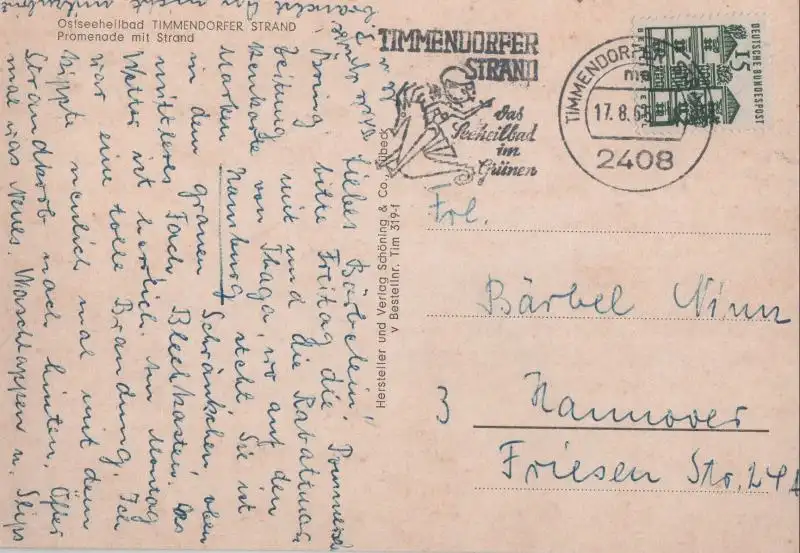 Ostseeheilbad TIMMENDORFER STRAND
Promenade mit Strand
TIMMENDORFER
STRAND
das
Seeheilbad
im
Grünen
TIMMENDORFER
17.8.6
2408
15
DEUTSCHE BUNDESPOST
Hersteller und Verlag Schöning & Co., Lübeck
V Bestellnr. Tim 319-1
Frl.
Bärbel Ninn
3 Hannover
Friesen Str. 24A
Liebes Bärbelein!
Bring bitte Freitag die
Zeitung mit und die Rabattmar
von Thaga, wo auf den
Marken Hamburg steht. Sie ist
in dem grauen Schränkchen, oben
mittleres Fach, Blechkasten. Das
Wetter ist herrlich. Am Montag
war eine tolle Brandung. Ich
kippte neulich mal mit dem
Strandkorb nach hinten. Öfter
mal was Neues. Waschlappen u. Slips